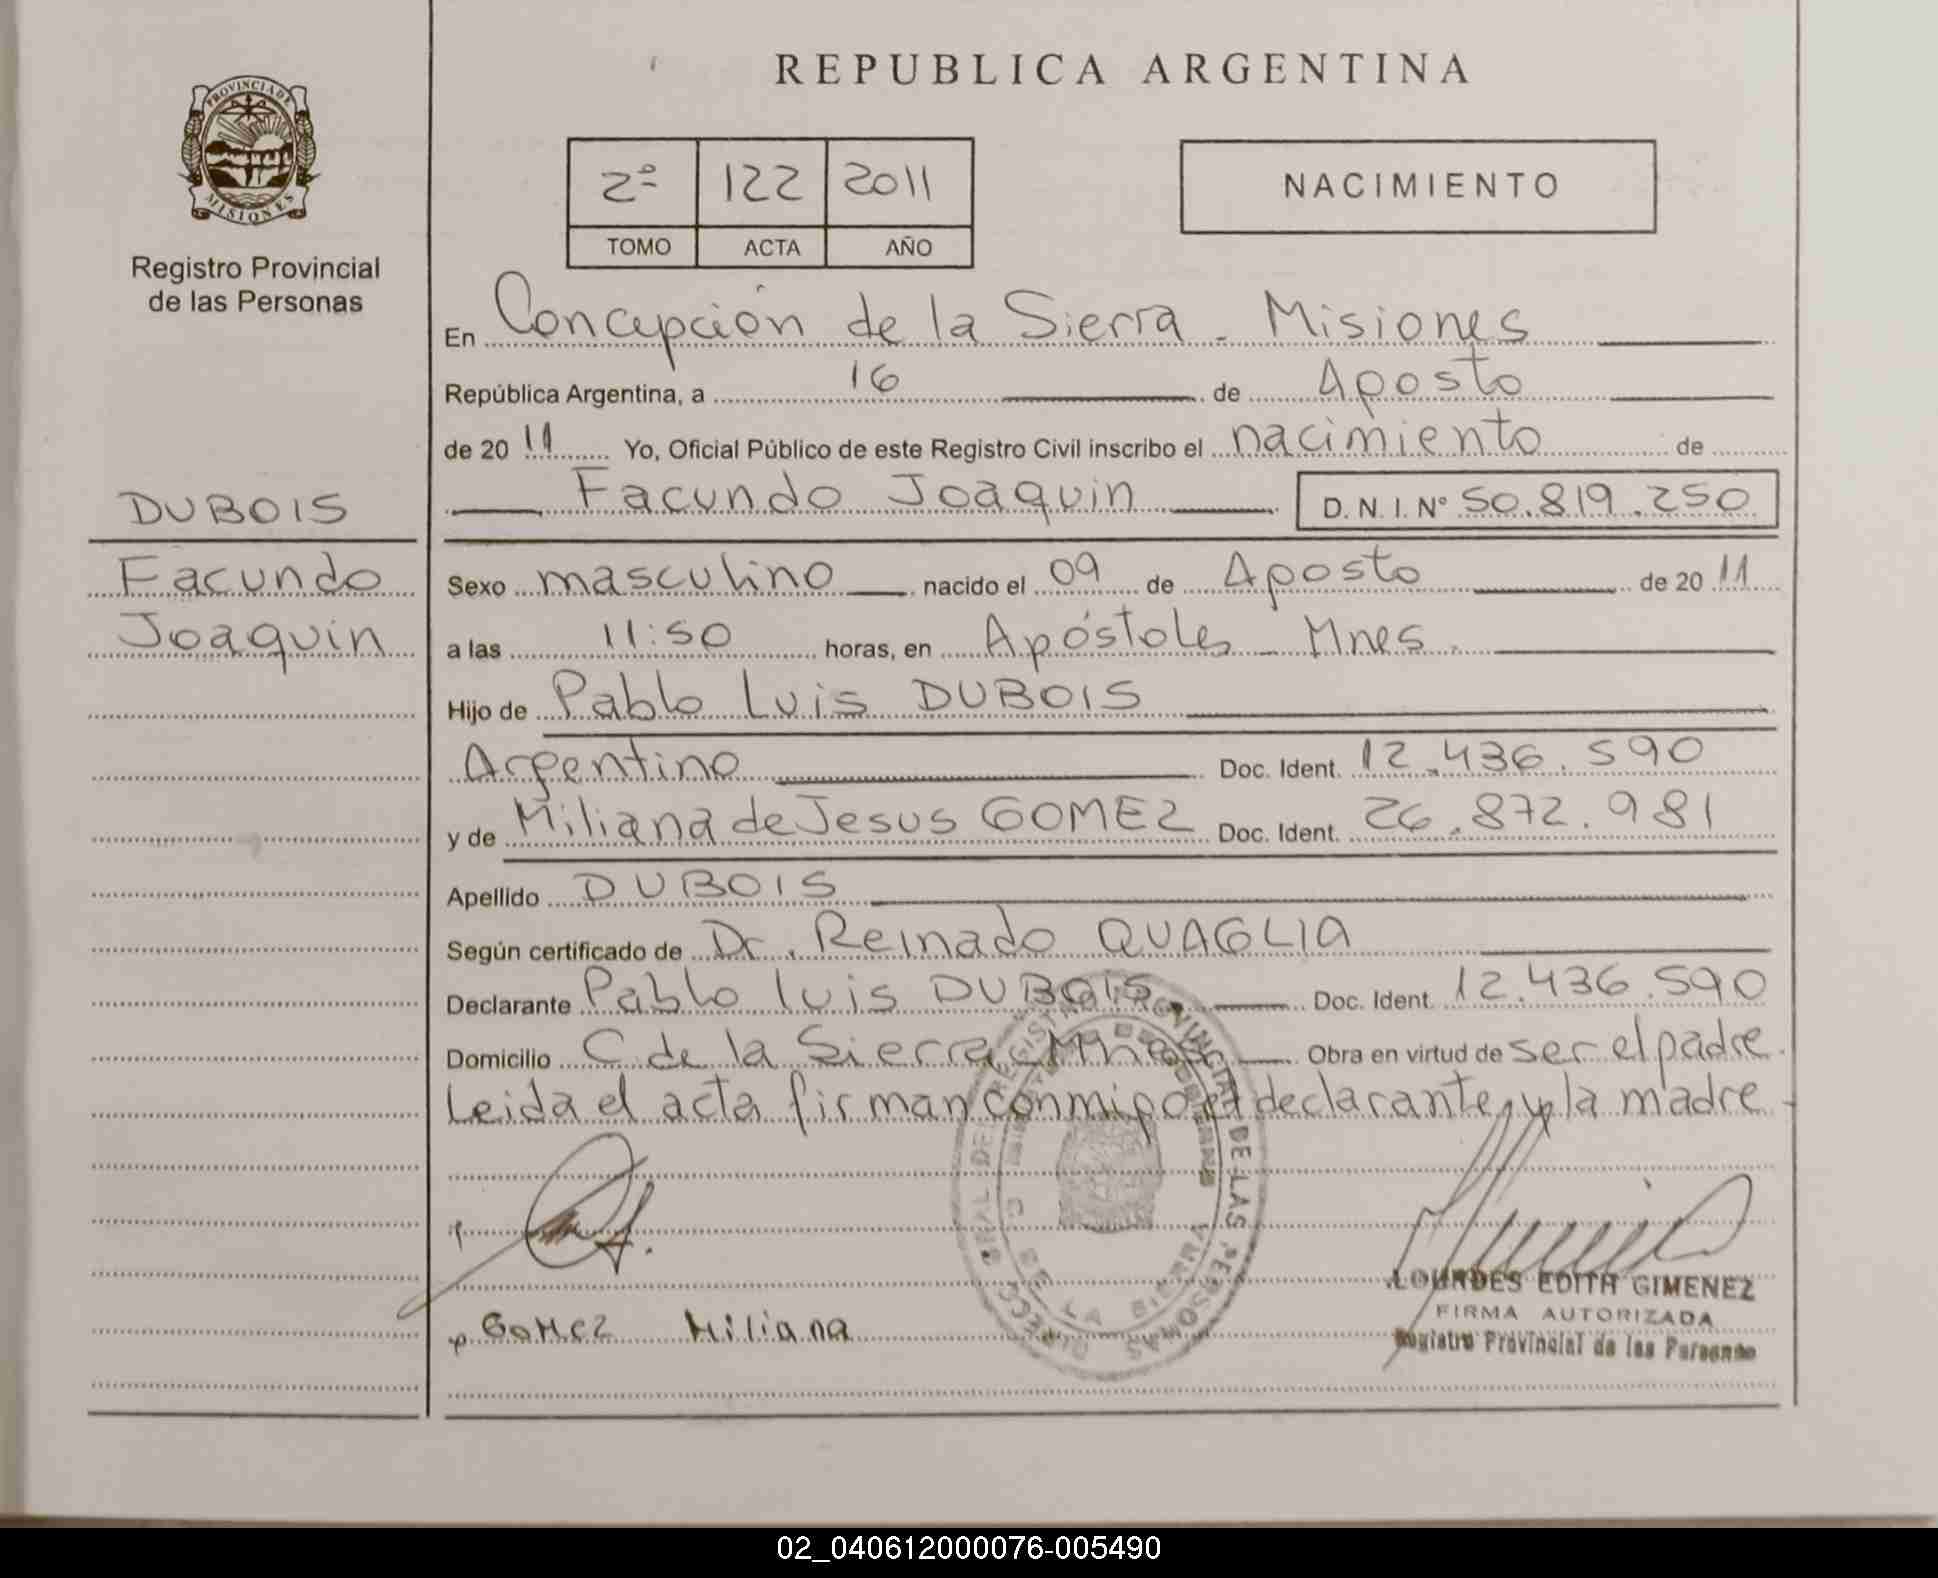 REPUBLICA ARGENTINA
PROVINCIA DE
MISIONES
Registro Provincial
de las Personas
2º 122 2011
TOMO ACTA AÑO
NACIMIENTO
En Concepción de la Sierra - Misiones
República Argentina, a 16 de Agosto
de 2011 Yo, Oficial Público de este Registro Civil inscribo el nacimiento de
Facundo Joaquin D. N. I. Nº 50.819.250
DUBOIS
Facundo
Joaquin
Sexo masculino nacido el 09 de Agosto de 2011
a las 11:50 horas, en Apóstoles - Mnes.
Hijo de Pablo Luis DUBOIS
Argentino Doc. Ident. 12.436.590
y de Miliana de Jesus GOMEZ Doc. Ident. 26.872.981
Apellido DUBOIS
Según certificado de Dr. Reinado QUAGLIA
Declarante Pablo Luis DUBOIS. Doc. Ident. 12.436.590
Domicilio C. de la Sierra Mnes Obra en virtud de ser el padre.
Leida el acta firman conmigo el declarante y la madre -
Gomez Miliana
LOURDES EDITH GIMENEZ
FIRMA AUTORIZADA
Registro Provincial de las Personas
02_040612000076-005490